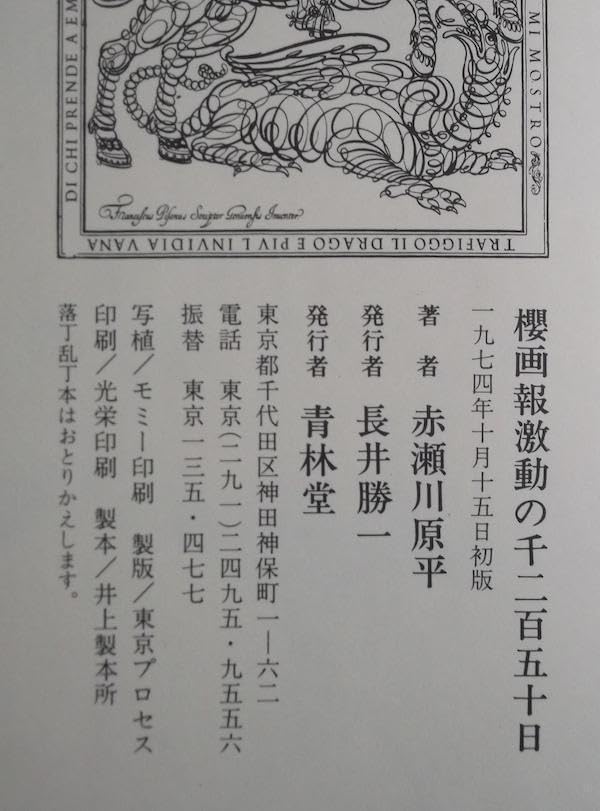 DI CHI PRENDE A EM
MI MOSTRO
Franciscus Pisanus Scriptor Genuensis Inventor
TRAFIGGO IL DRAGO E PIV L INVIDIA VANA
櫻画報激動の千二百五十日
一九七四年十月十五日初版
著者 赤瀬川原平
発行者 長井勝一
発行者 青林堂
東京都千代田区神田神保町一―六二
電話 東京(二九一)二四九五・九五五六
振替 東京一三五・四七七
写植/モミー印刷 製版/東京プロセス
印刷/光栄印刷 製本/井上製本所
落丁乱丁本はおとりかえします。